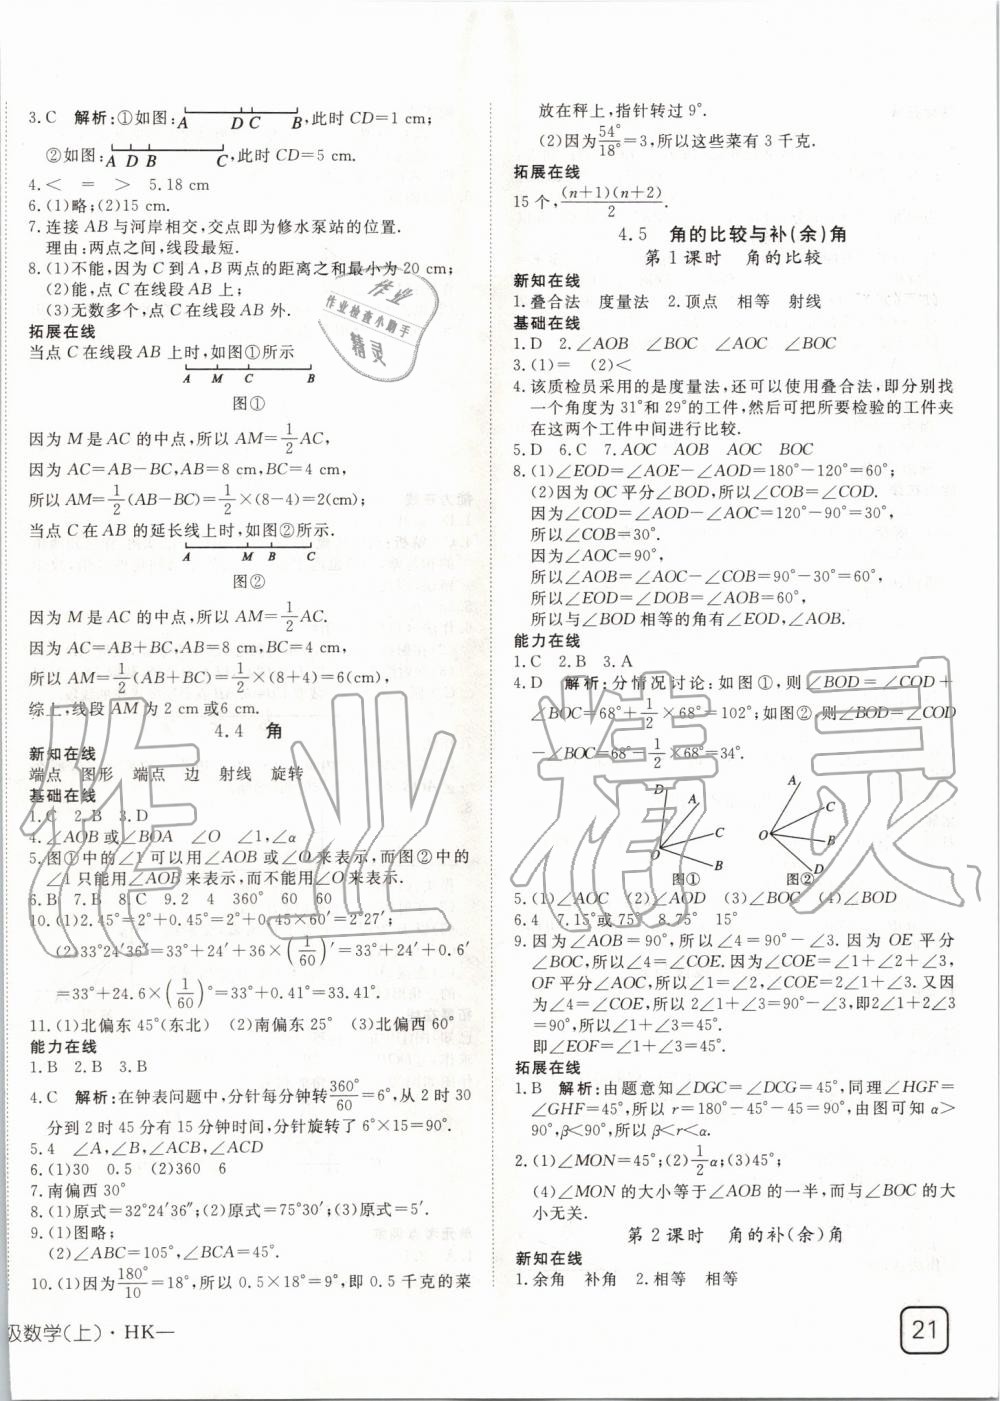 3.C 解析:①如图: A D C B ,此时 CD=1 cm;
②如图: A D B C ,此时 CD=5 cm.
4.< = > 5.18 cm
6.(1)略;(2)15 cm.
7.连接 AB 与河岸相交,交点即为修水泵站的位置.
理由:两点之间,线段最短.
8.(1)不能,因为 C 到 A,B 两点的距离之和最小为 20 cm;
(2)能,点 C 在线段 AB 上;
(3)无数多个,点 C 在线段 AB 外.
拓展在线
当点 C 在线段 AB 上时,如图①所示
A M C B
图①
因为 M 是 AC 的中点,所以 AM=1/2 AC,
因为 AC=AB-BC,AB=8 cm,BC=4 cm,
所以 AM=1/2(AB-BC)=1/2×(8-4)=2(cm);
当点 C 在 AB 的延长线上时,如图②所示.
A M B C
图②
因为 M 是 AC 的中点,所以 AM=1/2 AC.
因为 AC=AB+BC,AB=8 cm,BC=4 cm,
所以 AM=1/2(AB+BC)=1/2×(8+4)=6(cm),
综上,线段 AM 为 2 cm 或6 cm.
4.4 角
新知在线
端点 图形 端点 边 射线 旋转
基础在线
1.C 2.B 3.D
4.∠AOB或∠BOA ∠O ∠1,∠α
5.图①中的∠1 可以用∠AOB 或∠O 来表示,而图②中的
∠1只能用∠AOB来表示,而不能用∠O来表示.
6.B 7.B 8.C 9.2 4 360° 60 60
10.(1)2.45°=2°+0.45°=2°+0.45×60′=2°27′;
(2)33°24′36″=33°+24′+36×(1/60)′=33°+24′+0.6′
=33°+24.6×(1/60)°=33°+0.41°=33.41°.
11.(1)北偏东 45°(东北) (2)南偏东 25° (3)北偏西 60°
能力在线
1.B 2.B 3.B
4.C 解析:在钟表问题中,分针每分钟转360°/60=6°,从 2 时 30
分到 2 时 45 分有 15 分钟时间,分针旋转了 6°×15=90°.
5.4 ∠A,∠B,∠ACB,∠ACD
6.(1)30 0.5 (2)360 6
7.南偏西 30°
8.(1)原式=32°24′36″;(2)原式=75°30′;(3)原式=5′.
9.(1)图略;
(2)∠ABC=105°,∠BCA=45°.
10.(1)因为180°/10=18°,所以 0.5×18°=9°,即 0.5 千克的菜
放在秤上,指针转过 9°.
(2)因为54°/18°=3,所以这些菜有 3 千克.
拓展在线
15 个,(n+1)(n+2)/2.
4.5 角的比较与补(余)角
第 1 课时 角的比较
新知在线
1.叠合法 度量法 2.顶点 相等 射线
基础在线
1.D 2.∠AOB ∠BOC ∠AOC ∠BOC
3.(1)= (2)<
4.该质检员采用的是度量法,还可以使用叠合法,即分别找
一个角度为 31°和 29°的工件,然后可把所要检验的工件夹
在这两个工件中间进行比较.
5.D 6.C 7.AOC AOB AOC BOC
8.(1)∠EOD=∠AOE-∠AOD=180°-120°=60°;
(2)因为 OC 平分∠BOD,所以∠COB=∠COD.
因为∠COD=∠AOD-∠AOC=120°-90°=30°,
所以∠COB=30°.
因为∠AOC=90°,
所以∠AOB=∠AOC-∠COB=90°-30°=60°,
所以∠EOD=∠DOB=∠AOB=60°,
所以与∠BOD 相等的角有∠EOD,∠AOB.
能力在线
1.C 2.B 3.A
4.D 解析:分情况讨论:如图①,则∠BOD=∠COD+
∠BOC=68°+1/2×68°=102°;如图②,则∠BOD=∠COD
-∠BOC=68°-1/2×68°=34°.
D A C O B
D C O B A
图① 图②
5.(1)∠AOC (2)∠AOD (3)∠BOC (4)∠BOD
6.4 7.15°或 75° 8.75° 15°
9.因为∠AOB=90°,所以∠4=90°-∠3.因为 OE 平分
∠BOC,所以∠4=∠COE.因为∠COE=∠1+∠2+∠3,
OF平分∠AOC,所以∠1=∠2,∠COE=2∠1+∠3.又因
为∠4=∠COE,所以 2∠1+∠3=90°-∠3,即2∠1+2∠3
=90°,所以∠1+∠3=45°.
即∠EOF=∠1+∠3=45°.
拓展在线
1.B 解析:由题意知∠DGC=∠DCG=45°,同理∠HGF=
∠GHF=45°,所以 r=180°-45°-45=90°,由图可知 α>
90°,β<90°,所以 β<r<α.
2.(1)∠MON=45°;(2)1/2α;(3)45°;
(4)∠MON 的大小等于∠AOB 的一半,而与∠BOC 的大
小无关.
第 2 课时 角的补(余)角
新知在线
1.余角 补角 2.相等 相等
级数学(上)·HK一
21
作业
作业检查小助手
精灵
作业精灵